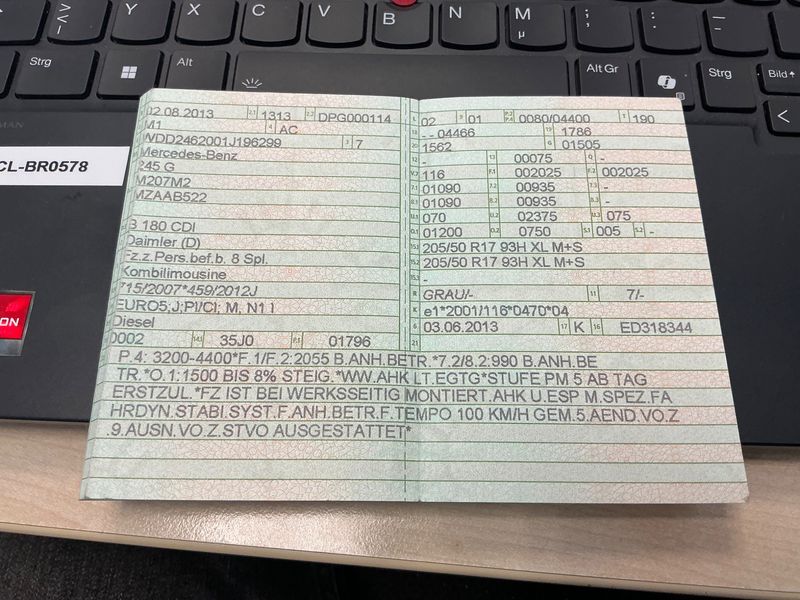 Y X C V B N M µ ; , : . _ -
Strg Alt Alt Gr Strg Bild
CL-BR0578
02.08.2013 2.1 1313 2.2 DPG000114
M1 4 AC
WDD2462001J196299 3 7
Mercedes-Benz
245 G
M207M2
MZAAB522
B 180 CDI
Daimler (D)
Fz.z.Pers.bef.b. 8 Spl.
Kombilimousine
715/2007*459/2012J
EURO5;J;PI/CI; M, N1 I
Diesel
0002 14.1 35J0 P.1 01796
L 02 9 01 P.2 P.4 0080/04400 T 190
18 - - 04466 19 1786
20 1562 G 01505
12 - 13 00075 Q -
V.7 116 F.1 002025 F.2 002025
7.1 01090 7.2 00935 7.3 -
8.1 01090 8.2 00935 8.3 -
U.1 070 U.2 02375 U.3 075
O.1 01200 O.2 0750 S.1 005 S.2 -
15.1 205/50 R17 93H XL M+S
15.2 205/50 R17 93H XL M+S
15.3 -
R GRAU/- 11 7/-
K e1*2001/116*0470*04
6 03.06.2013 17 K 16 ED318344
21
P.4: 3200-4400*F.1/F.2:2055 B.ANH.BETR.*7.2/8.2:990 B.ANH.BE
TR.*O.1:1500 BIS 8% STEIG.*WW.AHK LT.EGTG*STUFE PM 5 AB TAG
ERSTZUL.*FZ IST BEI WERKSSEITIG MONTIERT.AHK U.ESP M.SPEZ.FA
HRDYN.STABI.SYST.F.ANH.BETR.F.TEMPO 100 KM/H GEM.5.AEND.VO.Z
.9.AUSN.VO.Z.STVO AUSGESTATTET*